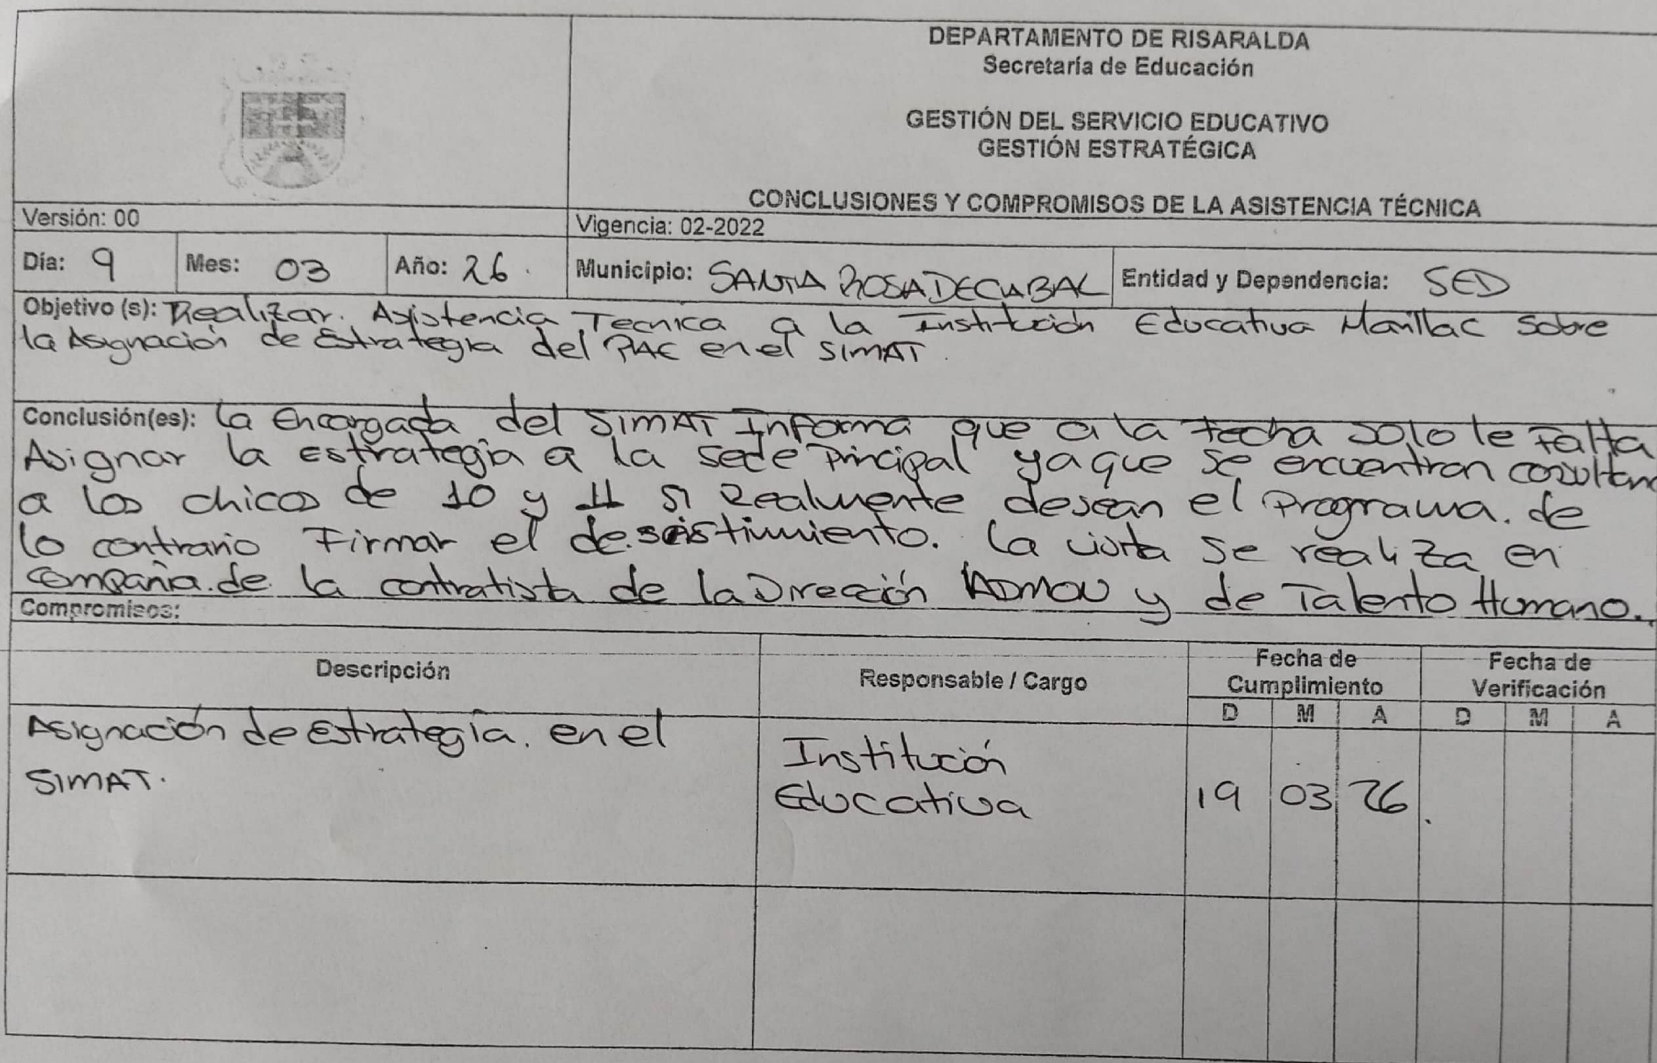 DEPARTAMENTO DE RISARALDA
Secretaría de Educación
GESTIÓN DEL SERVICIO EDUCATIVO
GESTIÓN ESTRATÉGICA
CONCLUSIONES Y COMPROMISOS DE LA ASISTENCIA TÉCNICA
Versión: 00
Vigencia: 02-2022
Día: 9 Mes: 03 Año: 26. Municipio: SANTA ROSA DE CABAL Entidad y Dependencia: SED
Objetivo (s): Realizar. Asistencia Tecnica a la Institución Educativa Marillac Sobre
la Asignación de Estrategia del PAE en el SIMAT.
Conclusión(es): La Encargada del SIMAT Informa que a la Fecha solo le Falta
Asignar la estrategia a la sede Principal ya que se encuentran consultand
a los chicos de 10 y 11 si Realmente desean el Programa. de
lo contrario Firmar el desistimiento. La visita se realiza en
compañia. de la contratista de la Dirección ADMON y de Talento Humano.
Compromisos:
Descripción
Responsable / Cargo
Fecha de Cumplimiento
Fecha de Verificación
D M A D M A
Asignación de Estrategia. en el
SIMAT.
Institución
Educativa
19 03 26